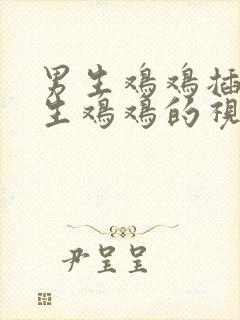 男生鸡鸡插
生鸡鸡的视
尹呈呈